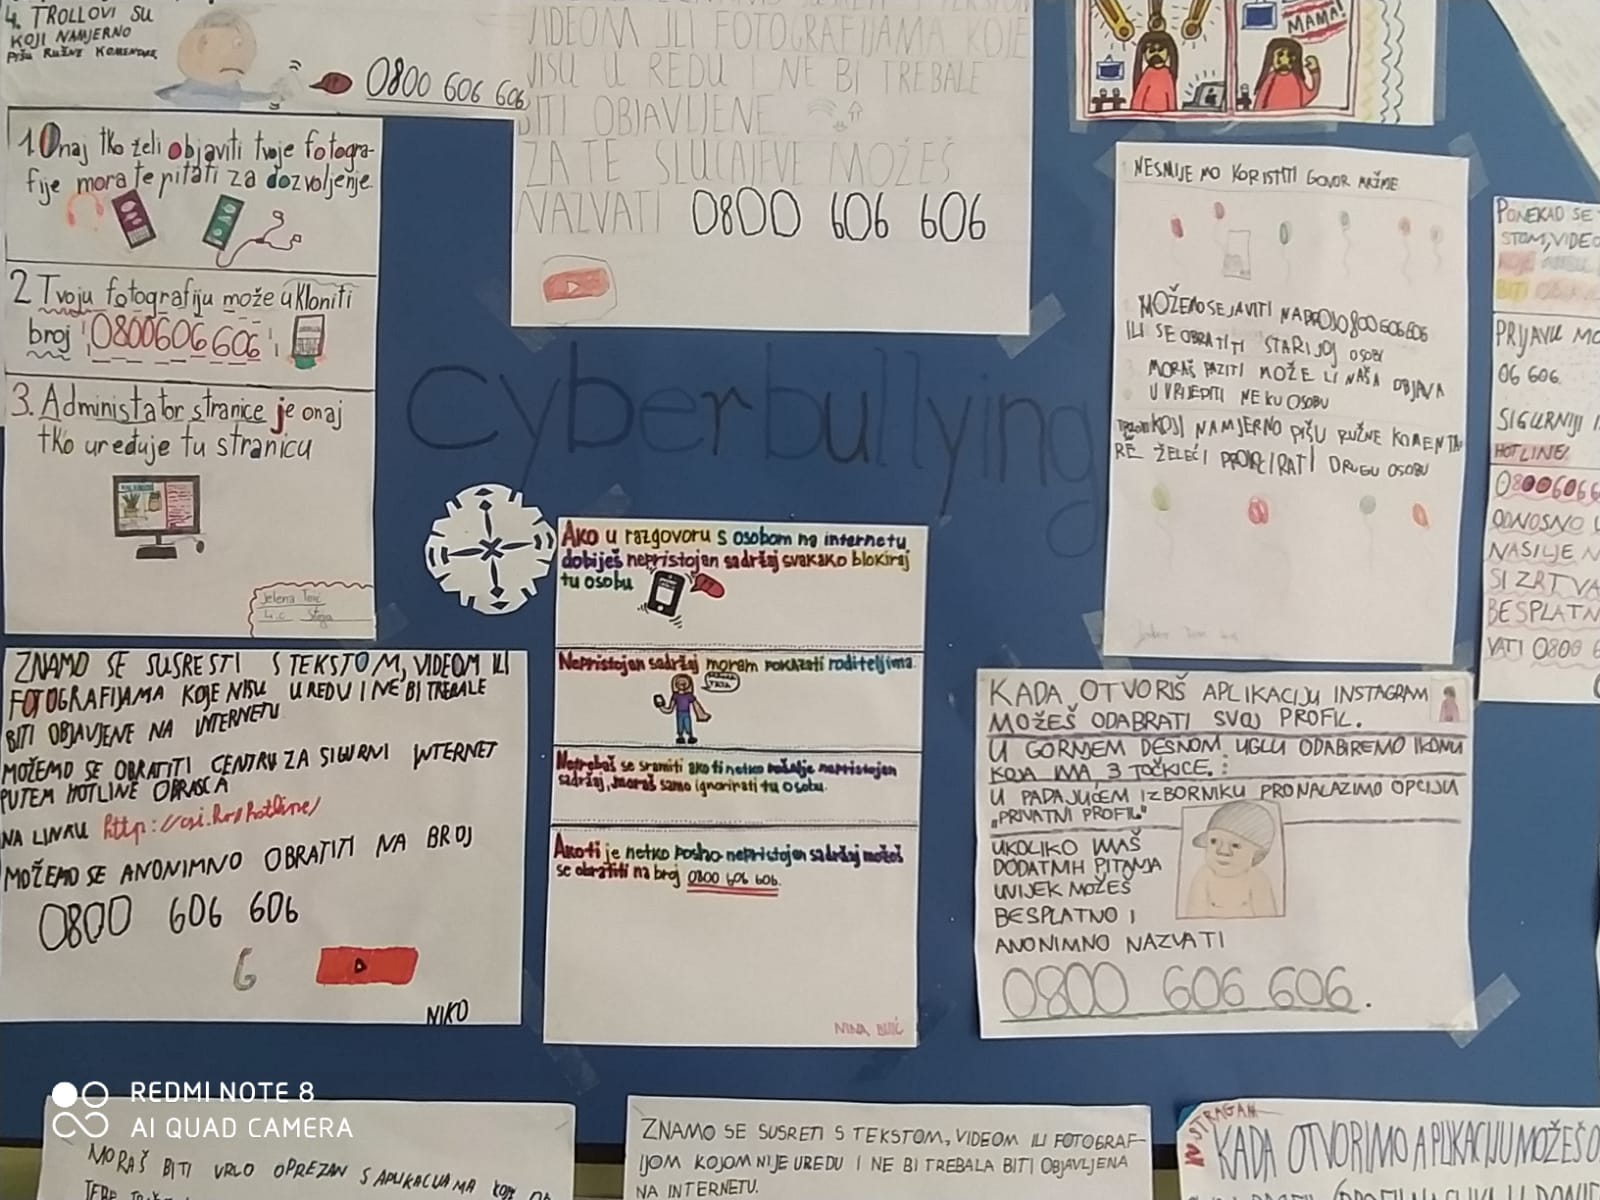 4. TROLLOVI SU
KOJI NAMJERNO
PIŠU RUŽNE KOMENTARE
0800 606 606
1. Onaj tko želi objaviti tvoje fotogra-
fije mora te pitati za dozvoljenje.
2 Tvoju fotografiju može ukloniti
broj 0800606 606
3. Administator stranice je onaj
tko uređuje tu stranicu
Jelena
4.c
VIDEOM ILI FOTOGRAFIJAMA KOJE
NISU U REDU I NE BI TREBALE
BITI OBJAVLJENE
ZA TE SLUČAJEVE MOŽEŠ
NAZVATI 0800 606 606
MAMA!
cyberbullying
NESMIJE MO KORISTITI GOVOR MRŽNJE
MOŽEMO SE JAVITI NA BROJ 0800 606 606
ILI SE OBRATITI STARIJOJ OSOBI
MORAŠ PAZITI MOŽE LI NAŠA OBJAVA
UVRIJEDITI NEKU OSOBU
KOJI NAMJERNO PIŠU RUŽNE KOMENTA
RE ŽELEĆI DRUGU OSOBU
PONEKAD SE
STOM, VIDEO
PRIJAVU MO
06 606.
SIGURNIJI I
HOTLINE/
0800606 6
ODNOSNO U
NASILJE N
SI ZRTVA
BESPLATN
VATI 0800 6
ZNAMO SE SUSRESTI S TEKSTOM, VIDEOM ILI
FOTOGRAFIJAMA KOJE NISU U REDU I NE BI TREBALE
BITI OBJAVJENE NA INTERNETU
MOŽEMO SE OBRATITI CENTRU ZA SIGURNI INTERNET
PUTEM HOTLINE OBRASCA
NA LINKU http://csi.hr/hotline/
MOŽEMO SE ANONIMNO OBRATITI NA BROJ
0800 606 606
NIKO
Ako u razgovoru s osobom na internetu
dobiješ nepristojan sadržaj svakako blokiraj
tu osobu
Nepristojan sadržaj moram pokazati roditeljima
Netrebaš se sramiti ako ti netko pošalje nepristojan
sadržaj, moraš samo ignorirati tu osobu.
Ako ti je netko poslao nepristojan sadržaj možeš
se obratiti na broj 0800 606 606.
NINA
KADA OTVORIŠ APLIKACIJU INSTAGRAM
MOŽEŠ ODABRATI SVOJ PROFIL.
U GORNJEM DESNOM UGLU ODABIREMO IKONU
KOJA IMA 3 TOČKICE. :
U PADAJUĆEM IZBORNIKU PRONALAZIMO OPCIJU
„PRIVATNI PROFIL"
UKOLIKO IMAŠ
DODATNIH PITANJA
UVIJEK MOŽEŠ
BESPLATNO I
ANONIMNO NAZVATI
0800 606 606.
REDMI NOTE 8
AI QUAD CAMERA
MORAŠ BITI VRLO OPREZAN S APLIKACIJAMA KOJE
ZNAMO SE SUSRETI S TEKSTOM, VIDEOM ILI FOTOGRAF-
IJOM KOJOM NIJE UREDU I NE BI TREBALA BITI OBJAVLJENA
NA INTERNETU.
INSTRAGAM
KADA OTVORIMO APLIKACIJU MOŽEŠ O